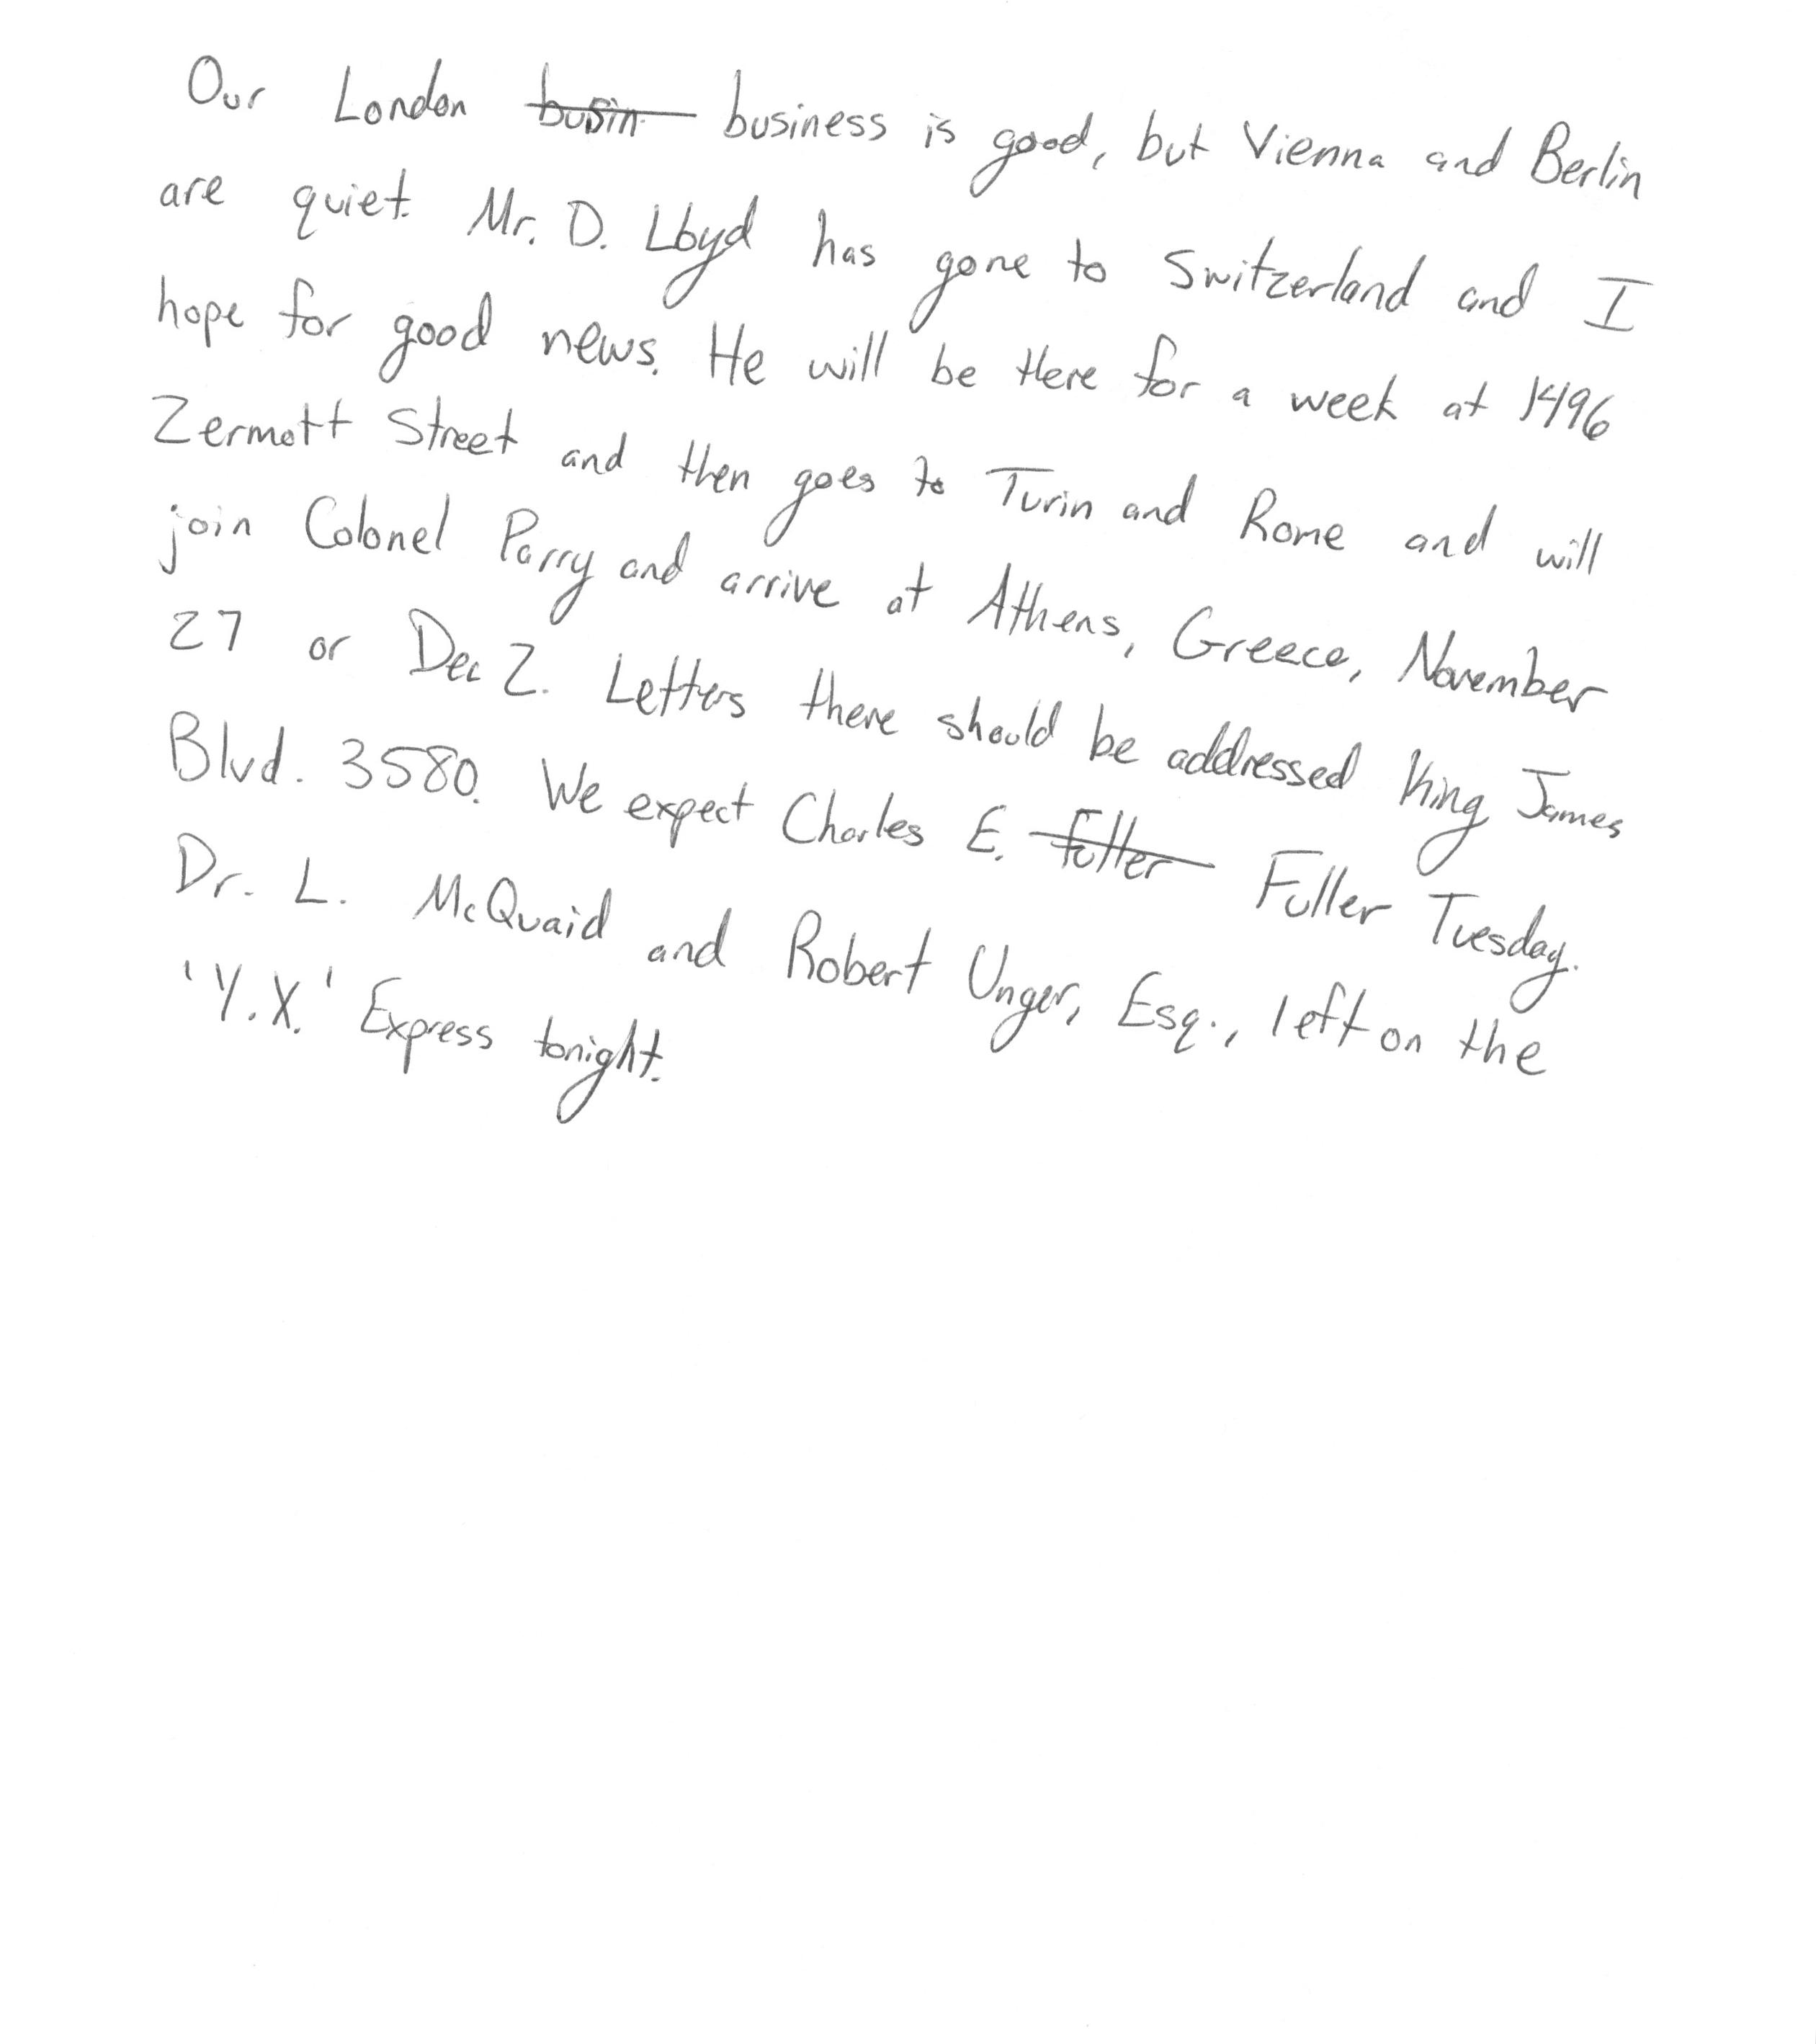 Our London busin business is good, but Vienna and Berlin
are quiet. Mr. D. Lloyd has gone to Switzerland and I
hope for good news. He will be there for a week at 1496
Zermott Street and then goes to Turin and Rome and will
join Colonel Parry and arrive at Athens, Greece, November
27 or Dec 2. Letters there should be addressed King James
Blvd. 3580. We expect Charles E. Fuller Fuller Tuesday.
Dr. L. McQuaid and Robert Unger, Esq., left on the
'Y.X.' Express tonight.